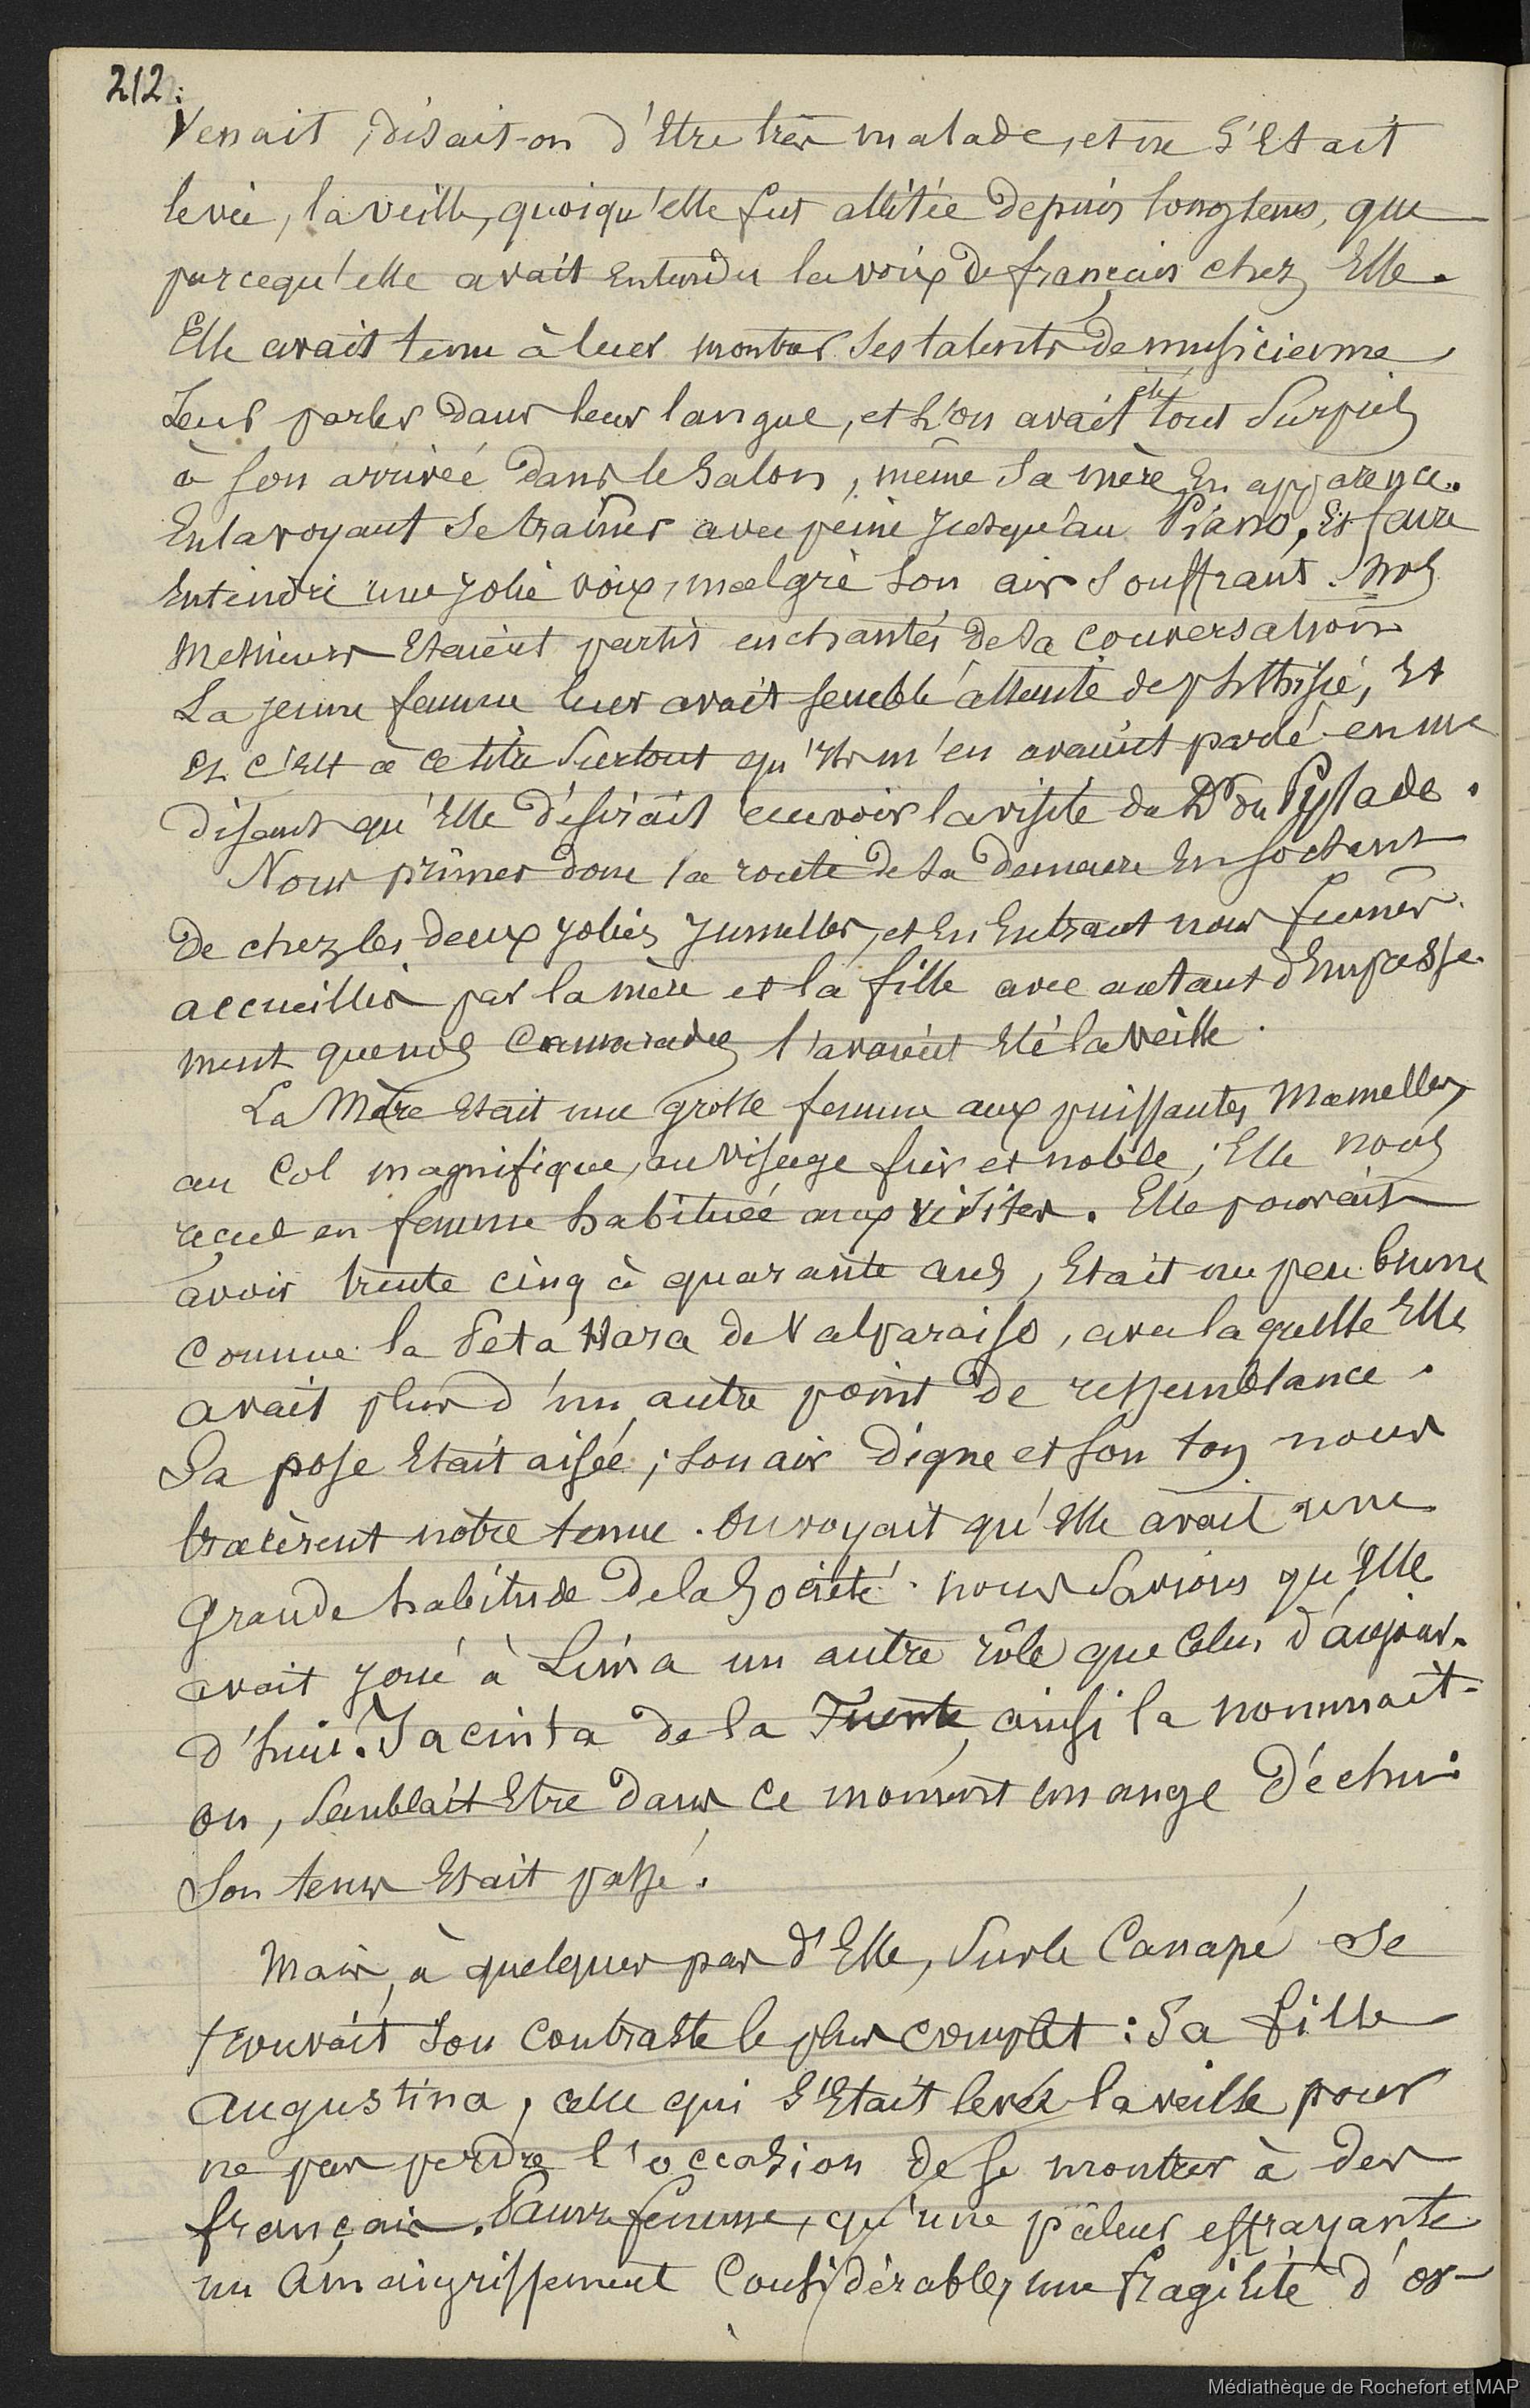 212:
Venait, disait-on d'Etre très malade, et ne s'Etait
levée, la veille, quoiqu'elle fut alitée depuis longtems, que
parcequ'elle avait Entendu la voix de français chez Elle.
Elle avait tenu à leur montrer ses talents de musicienne
Leur parler dans leur langue, et l'on avait été tout surpris
à son arrivée dans le salon, même sa mère En apparence.
En la voyant se traîner avec peine jusqu'au Piano, Et faire
Entendre une jolie voix, malgré son air souffrant. Nos
Messieurs Etaient partis enchantés de sa conversation
La jeune femme leur avait semblé atteinte de phthisie, Et
Et c'Est à ce titre surtout qu'ils m'en avaient parlé en me
disant qu'Elle désirait recevoir la visite du Dr du Pylade.
Nous prîmes donc la route de sa demeure En sortant
de chez les deux jolies jumelles, et En Entrant nous fumes
accueillis par la mère et la fille avec autant d'Empresse-
ment que nos Camarades l'avaient Eté la veille.
La Mère Etait une grosse femme aux puissantes Mamelles,
au Col magnifique, au visage fier et noble; Elle nous
reçut en femme habituée aux visites. Elle pouvait
avoir trente cinq à quarante ans, Etait un peu brune
Comme la Peta Hara de Valparaiso, avec laquelle Elle
avait plus d'un autre point de ressemblance.
Sa pose Etait aisée; son air digne et son ton nous
tracèrent notre tenue. On voyait qu'Elle avait une
Grande habitude de la Société. nous savions qu'Elle
avait joué à Lima un autre rôle que celui d'aujour-
d'hui. Jacinta de la Fuente, ainsi la nommait-
on, semblait Etre dans ce moment un ange déchu:
Son tems Etait passé.
Mais, à quelques pas d'Elle, sur le Canapé se
trouvait son contraste le plus complet: Sa fille
Augustina, celle qui s'Etait levée la veille pour
ne pas perdre l'occasion de se montrer à des
français. Pauvre femme, qu'une pâleur effrayante
un Amaigrissement Considérable, une fragilité d'os
Médiathèque de Rochefort et MAP